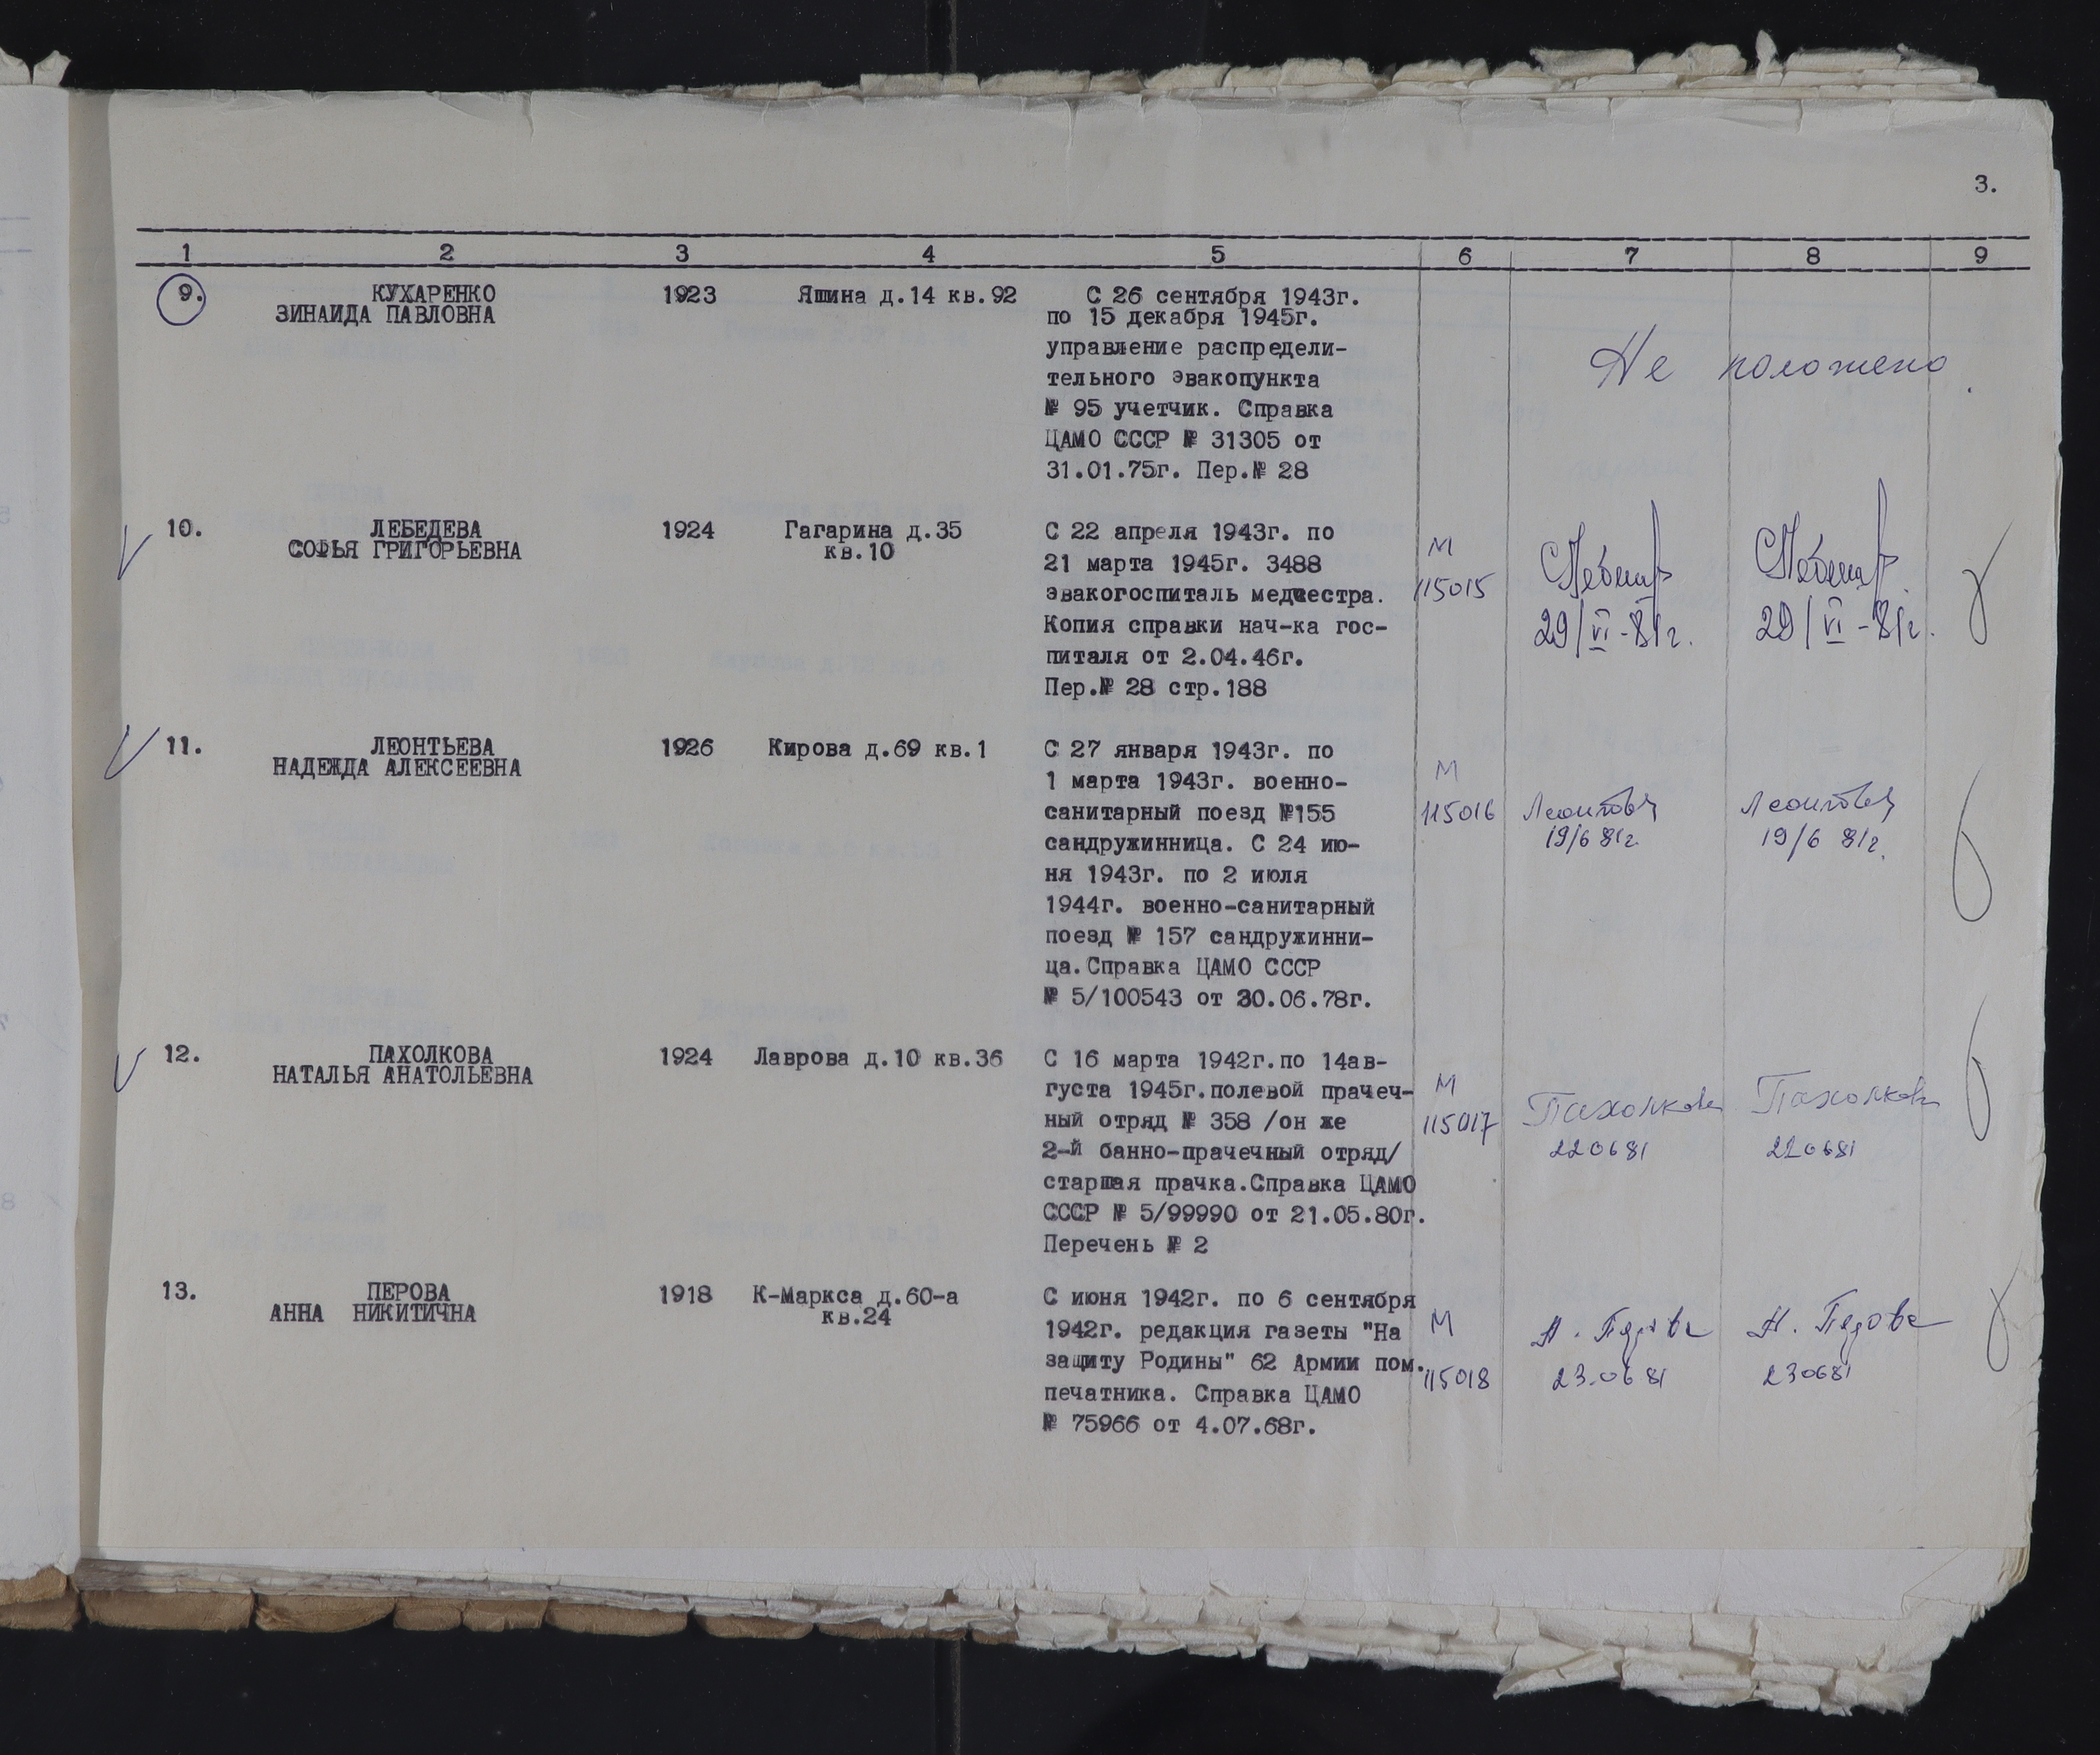 3.
1 2 3 4 5 6 7 8 9
9. КУХАРЕНКО 1923 Яшина д.14 кв.92 С 26 сентября 1943г.
ЗИНАИДА ПАВЛОВНА по 15 декабря 1945г.
управление распредели-
тельного эвакопункта Не положено.
№ 95 учетчик. Справка
ЦАМО СССР № 31305 от
31.01.75г. Пер.№ 28
10. ЛЕБЕДЕВА 1924 Гагарина д.35 С 22 апреля 1943г. по М
СОФЬЯ ГРИГОРЬЕВНА кв.10 21 марта 1945г. 3488 115015
эвакогоспиталь медсестра.
Копия справки нач-ка гос- 29/VI-81г. 29/VI-81г.
питаля от 2.04.46г.
Пер.№ 28 стр.188
11. ЛЕОНТЬЕВА 1926 Кирова д.69 кв.1 С 27 января 1943г. по М
НАДЕЖДА АЛЕКСЕЕВНА 1 марта 1943г. военно-
санитарный поезд №155 115016
сандружинница. С 24 ию- 19/6 81г. 19/6 81г.
ня 1943г. по 2 июля
1944г. военно-санитарный
поезд № 157 сандружинни-
ца.Справка ЦАМО СССР
№ 5/100543 от 30.06.78г.
12. ПАХОЛКОВА 1924 Лаврова д.10 кв.36 С 16 марта 1942г.по 14ав- М
НАТАЛЬЯ АНАТОЛЬЕВНА густа 1945г.полевой прачеч-
ный отряд № 358 /он же 115017 Пахолкова Пахолкова
2-й банно-прачечный отряд/ 220681 220681
старшая прачка.Справка ЦАМО
СССР № 5/99990 от 21.05.80г.
Перечень № 2
13. ПЕРОВА 1918 К-Маркса д.60-а С июня 1942г. по 6 сентября М
АННА НИКИТИЧНА кв.24 1942г. редакция газеты "На
защиту Родины" 62 Армии пом. 115018 23.0681 230681
печатника. Справка ЦАМО
№ 75966 от 4.07.68г.